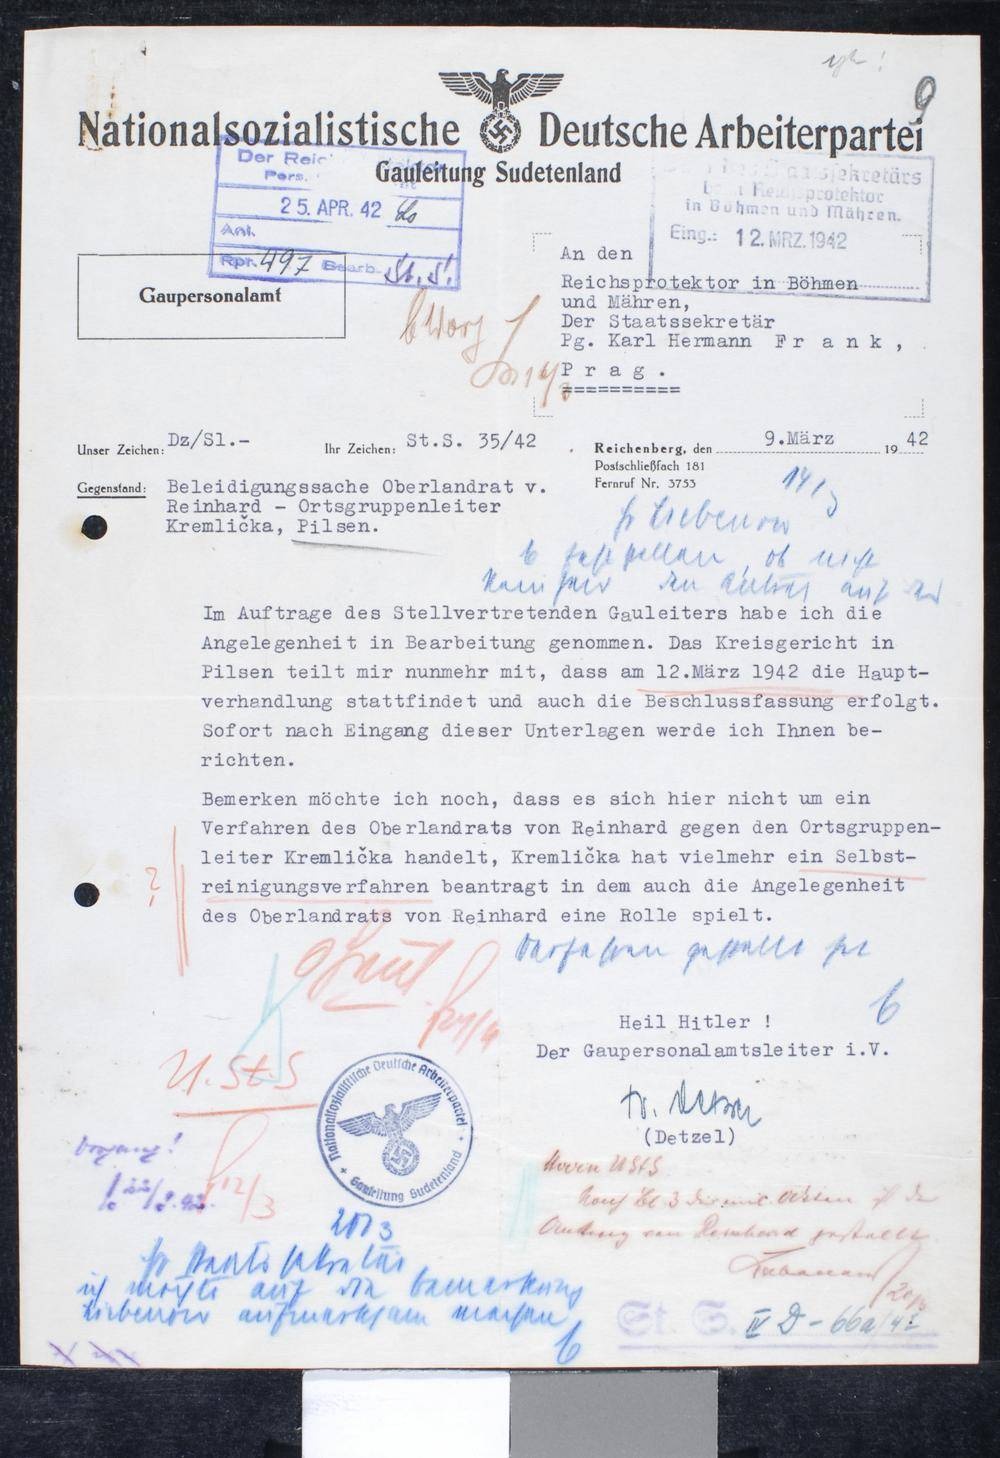 9
Nationalsozialistische Deutsche Arbeiterpartei
Gauleitung Sudetenland
Der
Pers.
25. APR. 42
Anl.
Rpr. 497 Bearb. St. S.
Staatssekretärs
beim Reichsprotektor
in Böhmen und Mähren.
Eing.: 12. MRZ. 1942
Gaupersonalamt
An den
Reichsprotektor in Böhmen
und Mähren,
Der Staatssekretär
Pg. Karl Hermann F r a n k ,
P r a g .
==========
Unser Zeichen: Dz/Sl.-
Ihr Zeichen: St.S. 35/42
Reichenberg, den 9.März 1942
Postschließfach 181
Fernruf Nr. 3753
Gegenstand: Beleidigungssache Oberlandrat v.
Reinhard - Ortsgruppenleiter
Kremlička, Pilsen.
14/3
Liebenow
ob nicht
Im Auftrage des Stellvertretenden Gauleiters habe ich die
Angelegenheit in Bearbeitung genommen. Das Kreisgericht in
Pilsen teilt mir nunmehr mit, dass am 12.März 1942 die Haupt-
verhandlung stattfindet und auch die Beschlussfassung erfolgt.
Sofort nach Eingang dieser Unterlagen werde ich Ihnen be-
richten.
Bemerken möchte ich noch, dass es sich hier nicht um ein
Verfahren des Oberlandrats von Reinhard gegen den Ortsgruppen-
leiter Kremlička handelt, Kremlička hat vielmehr ein Selbst-
reinigungsverfahren beantragt in dem auch die Angelegenheit
des Oberlandrats von Reinhard eine Rolle spielt.
?
Verfahren gestellt hat
Heil Hitler !
Der Gaupersonalamtsleiter i.V.
(Detzel)
U. St S
12/3
Nationalsozialistische Deutsche Arbeiterpartei
Gauleitung Sudetenland
Vorgang!
Herrn UStS
von Reinhard gestellt
20/3
ich möchte auf die Bemerkung
Liebenow aufmerksam machen
St. S. IV D - 66a/42